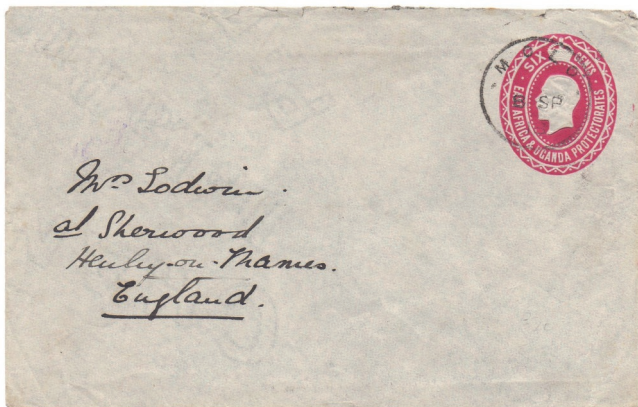 SIX CENTS
EAST AFRICA & UGANDA PROTECTORATES
SP
Mrs Lodwin.
at Sherwood
Henley-on-Thames.
England.